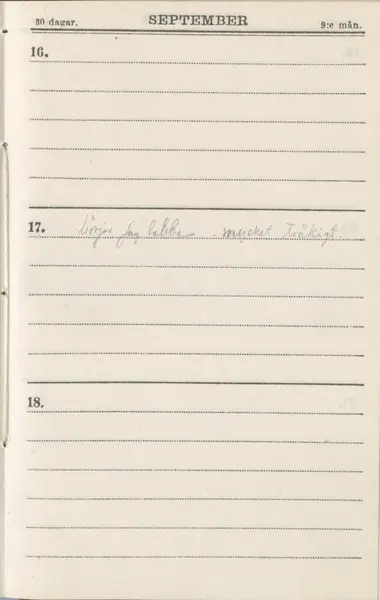 30 dagar. SEPTEMBER 9:e mån.
16.
17. Börjar jag jobba - mycket tråkigt
18.